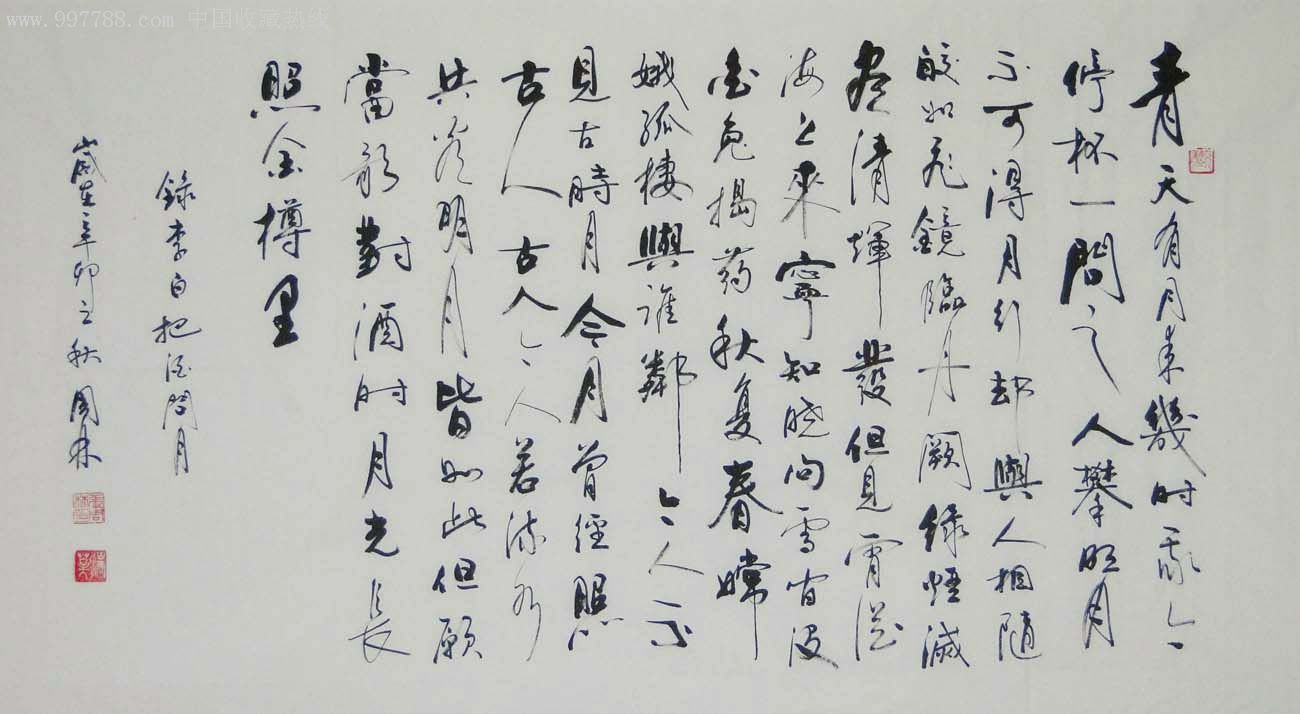 www.997788.com 中国收藏热线
青天有月来幾时我今
停杯一問之人攀明月
不可得月行却與人相隨
皎如飛鏡臨丹闕緑煙滅
盡清輝發但見宵從
海上來寧知曉向雲间没
白兔搗药秋复春嫦
娥孤棲與誰鄰今人不
見古時月今月曾經照
古人古人今人若流水
共看明月皆如此但願
當歌對酒时月光長
照金樽里
錄李白把酒問月
歲在辛卯之秋